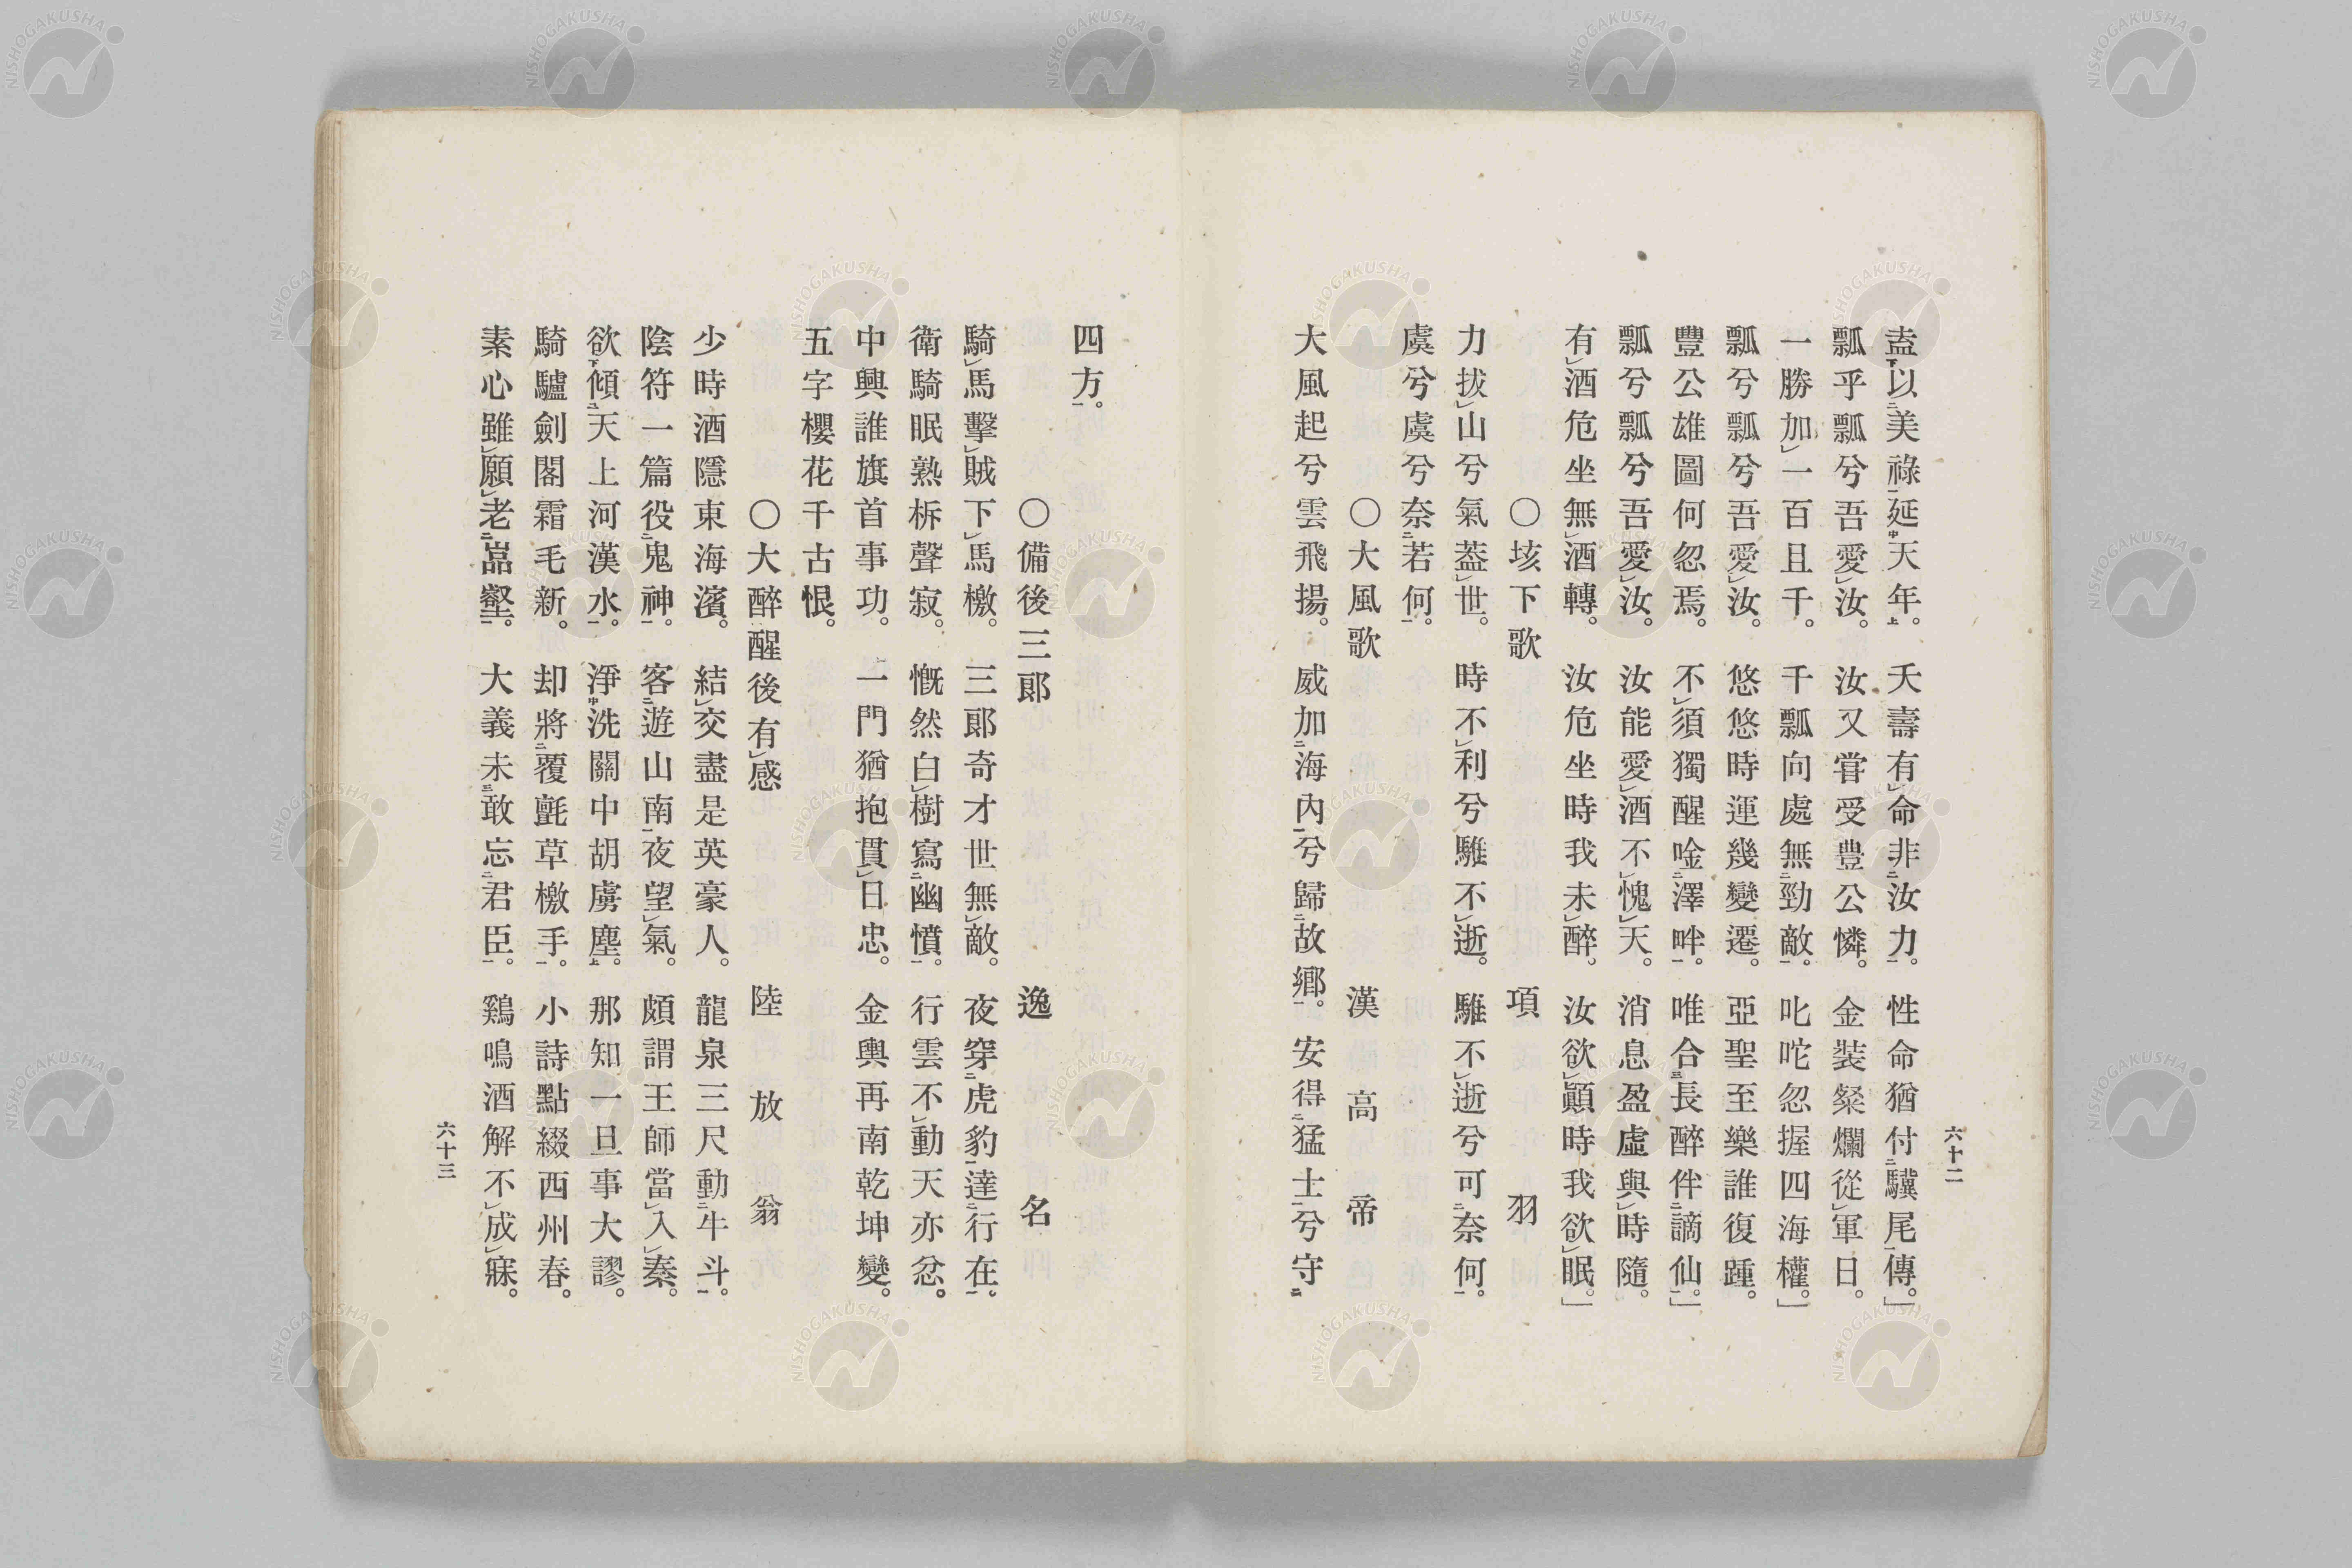 六十二
盍以美祿延天年。夭壽有命非汝力。性命猶付驥尾傳。」
瓢乎瓢兮吾愛汝。汝又嘗受豊公憐。金裝燦爛從軍日。
一勝加一百且千。千瓢向處無勁敵。叱咜忽握四海權。」
瓢兮瓢兮吾愛汝。悠悠時運幾變遷。亞聖至樂誰復踵。
豐公雄圖何忽焉。不須獨醒唫澤畔。唯合長醉伴謫仙。」
瓢兮瓢兮吾愛汝。汝能愛酒不愧天。消息盈虛與時隨。
有酒危坐無酒轉。汝危坐時我未醉。汝欲顚時我欲眠。」
〇垓下歌 項羽
力拔山兮氣蓋世。時不利兮騅不逝。騅不逝兮可奈何。
虞兮虞兮奈若何。
〇大風歌 漢高帝
大風起兮雲飛揚。威加海內兮歸故鄉。安得猛士兮守
四方。
〇備後三郞 逸名
騎馬擊賊下馬檄。三郞奇才世無敵。夜穿虎豹達行在。
衛騎眠熟柝聲寂。慨然白樹寫幽憤。行雲不動天亦忿。
中興誰旗首事功。一門猶抱貫日忠。金輿再南乾坤變。
五字櫻花千古恨。
〇大醉醒後有感 陸放翁
少時酒隱東海濱。結交盡是英豪人。龍泉三尺動牛斗。
陰符一篇役鬼神。客遊山南夜望氣。頗謂王師當入秦。
欲傾天上河漢水。淨洗關中胡虜塵。那知一旦事大謬。
騎驢劍閣霜毛新。却將覆氈草檄手。小詩點綴西州春。
素心雖願老嵓壑。大義未敢忘君臣。鷄鳴酒解不成寐。
六十三